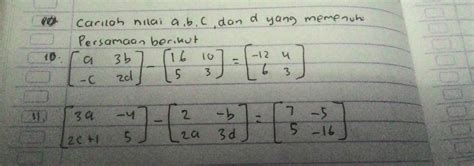 Carilah nilai a,b,c, dan d yang memenuhi
Persamaan berikut
10. [a 3b; -c 2d] - [16 10; 5 3] = [-12 4; 6 3]
11. [3a -4; 2c+1 5] - [2 -b; 2a 3d] = [7 -5; 5 -16]